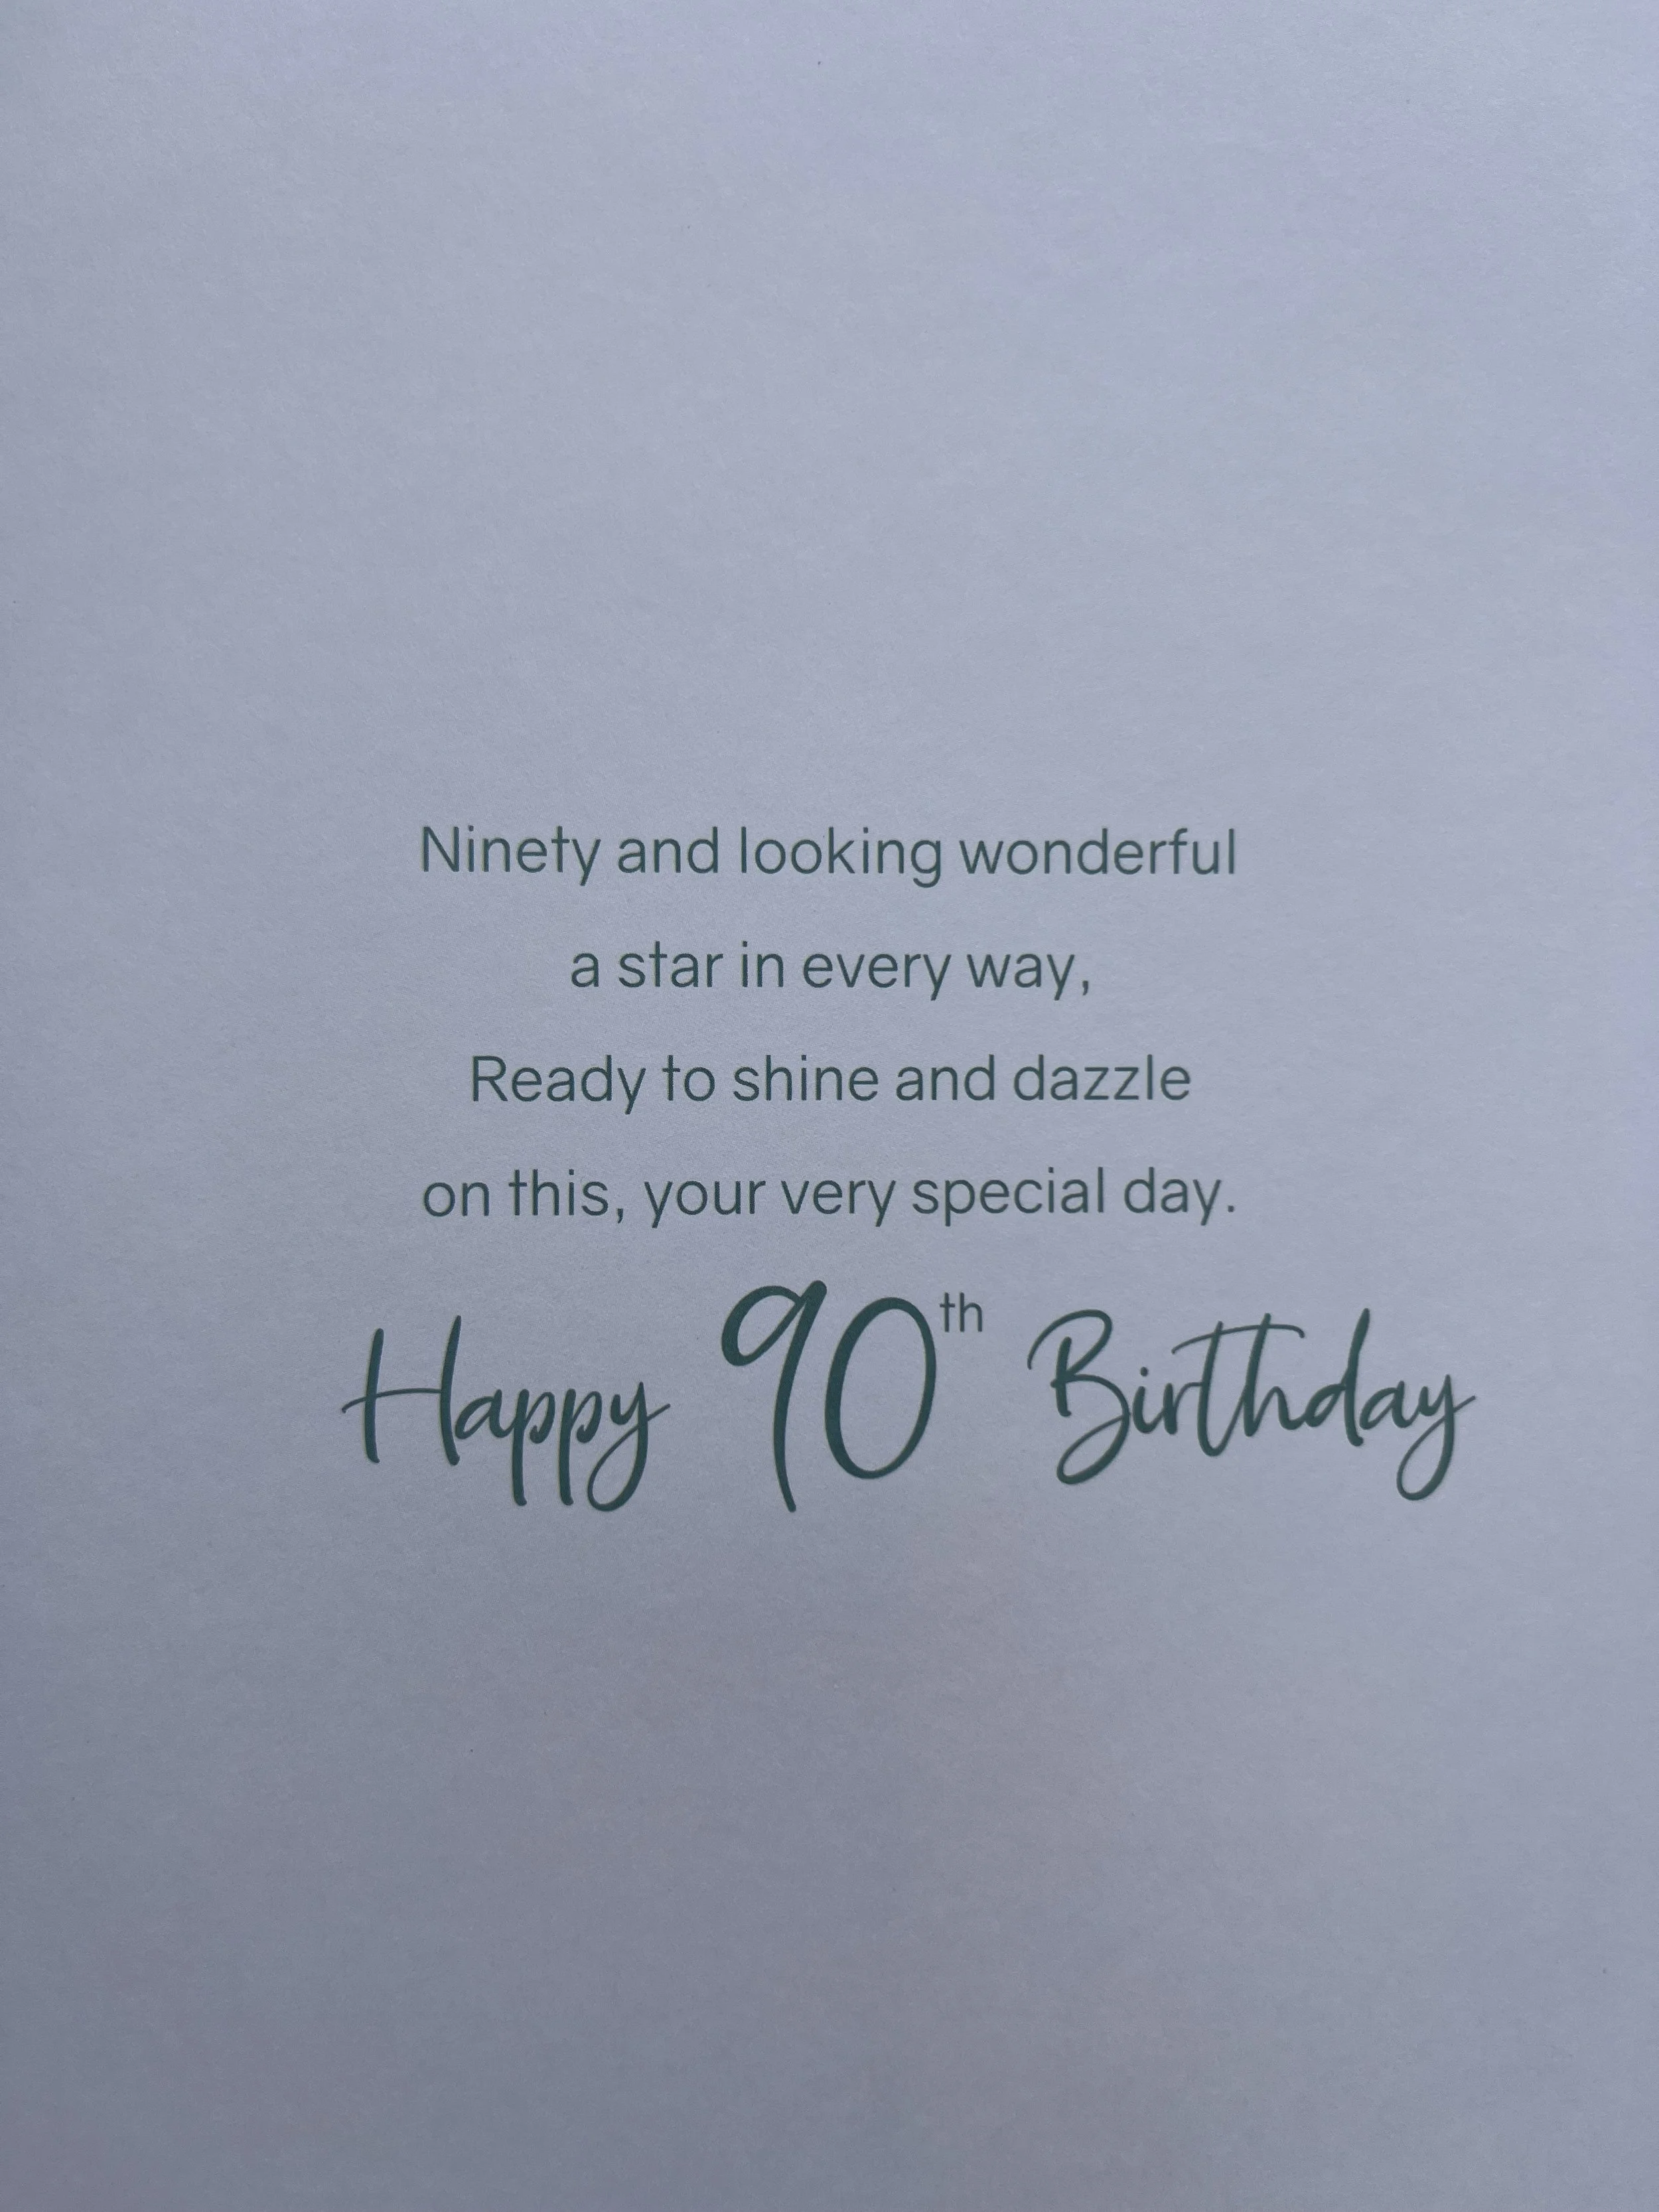 Ninety and looking wonderful
a star in every way,
Ready to shine and dazzle
on this, your very special day.
Happy 90th Birthday